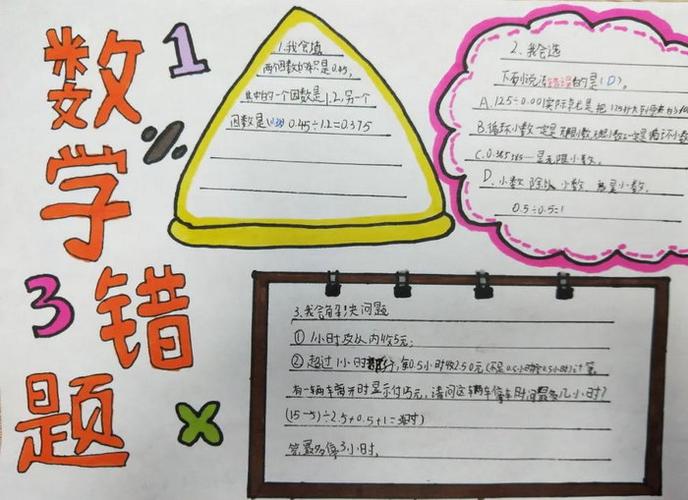 数学错题
1
3
1.我会填
两个因数的积只是0.45,
其中的一个因数是1.2,另一个
因数是( ) 0.45÷1.2=0.375
2.我会选
下面说法错误的是(D)。
A.125÷0.001实际就是把125扩大到原来的
B.循环小数一定是无限小数,无限小数一定是循环小数
C.0.385385…是无限小数。
D.小数除以小数,商是小数。
0.5÷0.5=1
3.我会解决问题
①1小时及以内收5元;
②超过1小时部分,每0.5小时收2.50元(不足0.5小时按0.5小时计算
有一辆车离开时显示付15元,请问这辆车停车时间最多几小时?
(15-5)÷2.5×0.5+1=3(小时)
答:最多停3小时。